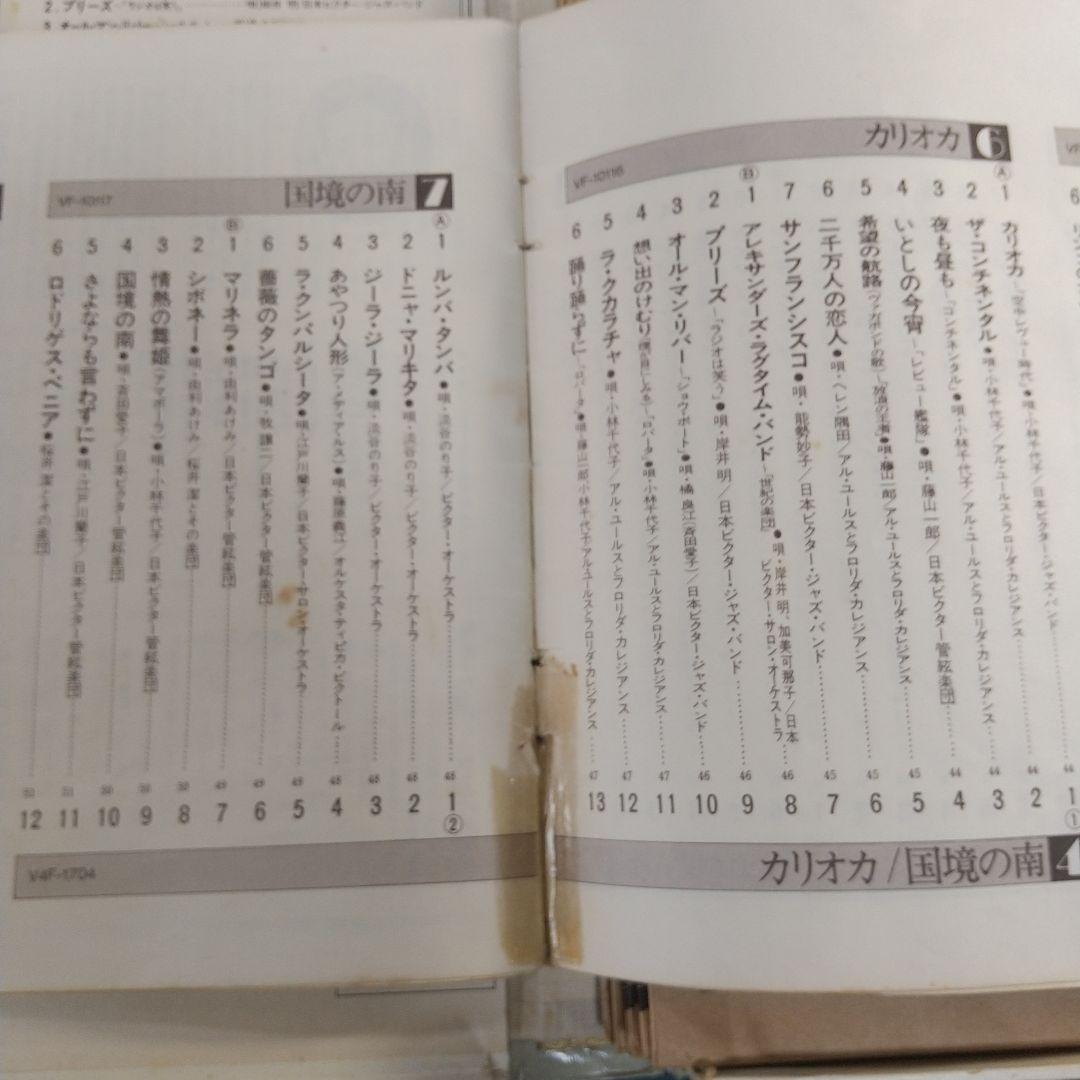 カリオカ 6
VF-10116
Ⓐ
1 カリオカ～「空中レヴュー時代」●唄・小林千代子/日本ビクター・ジャズ・バンド 44 1
2 ザ・コンチネンタル●唄・小林千代子/アル・ユールスとフロリダ・カレジアンス 44 2
3 夜も昼も～「コンチネンタル」●唄・小林千代子/アル・ユールスとフロリダ・カレジアンス 44 3
4 いとしの今宵～「レビュー艦隊」●唄・藤山一郎/日本ビクター管絃楽団 44 4
5 希望の航路(ヴァガボンドの歌)～「放浪の王者」●唄・藤山一郎/アル・ユールスとフロリダ・カレジアンス 45 5
6 二千万人の恋人●唄・ヘレン隅田/アル・ユールスとフロリダ・カレジアンス 45 6
7 サンフランシスコ●唄・能勢妙子/日本ビクター・ジャズ・バンド 45 7
Ⓑ
1 アレキサンダーズ・ラグタイム・バンド～「世紀の楽団」●唄・岸井明、加美可那子/日本ビクター・サロン・オーケストラ 46 8
2 ブリーズ～「ラジオは笑う」●唄・岸井明/日本ビクター・ジャズ・バンド 46 9
3 オール・マン・リバー～「ショウボート」●唄・橘良江(斉田愛子)/日本ビクター・ジャズ・バンド 46 10
4 想い出のけむり(煙が目にしみる)～「ロバータ」●唄・小林千代子/アル・ユールスとフロリダ・カレジアンス 47 11
5 ラ・クカラチャ●唄・小林千代子/アル・ユールスとフロリダ・カレジアンス 47 12
6 踊り踊らずに～「ロバータ」●唄・藤山一郎、小林千代子/アル・ユールスとフロリダ・カレジアンス 47 13
①
カリオカ/国境の南 4
国境の南 7
VF-10117
Ⓐ
1 ルンバ・タンバ●唄・淡谷のり子/ビクター・オーケストラ 48 1
2 ドニャ・マリキタ●唄・淡谷のり子/ビクター・オーケストラ 48 2
3 ジーラ・ジーラ●唄・淡谷のり子/ビクター・オーケストラ 48 3
4 あやつり人形(ア・メディア・ルス)●唄・藤原義江/オルケスタ・ティピカ・ビクトール 48 4
5 ラ・クンパルシータ●唄・江戸川蘭子/日本ビクター・サロン・オーケストラ 49 5
6 薔薇のタンゴ●唄・牧譲二/日本ビクター管絃楽団 49 6
Ⓑ
1 マリネラ●唄・由利あけみ/日本ビクター管絃楽団 49 7
2 シボネー●唄・由利あけみ/桜井潔とその楽団 50 8
3 情熱の舞姫(アマポーラ)●唄・小林千代子/日本ビクター管絃楽団 50 9
4 国境の南●唄・斉田愛子/日本ビクター管絃楽団 50 10
5 さよならも言わずに●唄・江戸川蘭子/日本ビクター管絃楽団 51 11
6 ロドリゲス・ペニア●桜井潔とその楽団 12
②
V4F-1704